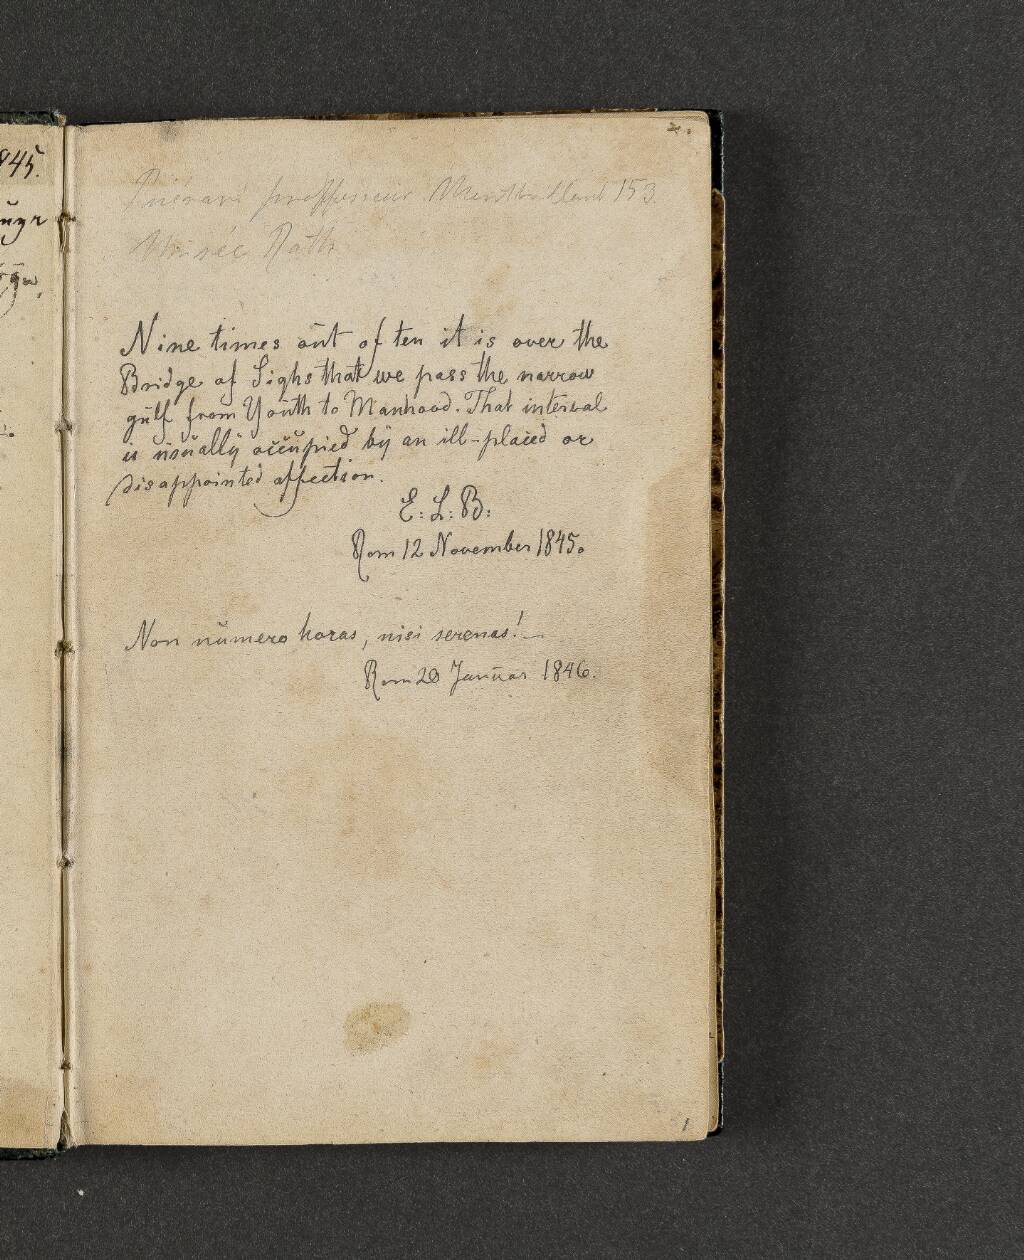 845.
2.
professeur 153
Musée Rath
Nine times out of ten it is over the
Bridge of Sighs that we pass the narrow
gulf from Youth to Manhood. That interval
is usually occupied by an ill-placed or
disappointed affection.
E: L: B:
Rom 12 November 1845.
Non numero horas, nisi serenas! _
Rom 20 Januar 1846.
1